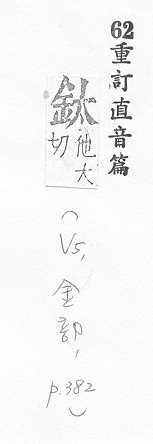 62重訂直音篇
鈦他大切
(V5,金部,p.382)